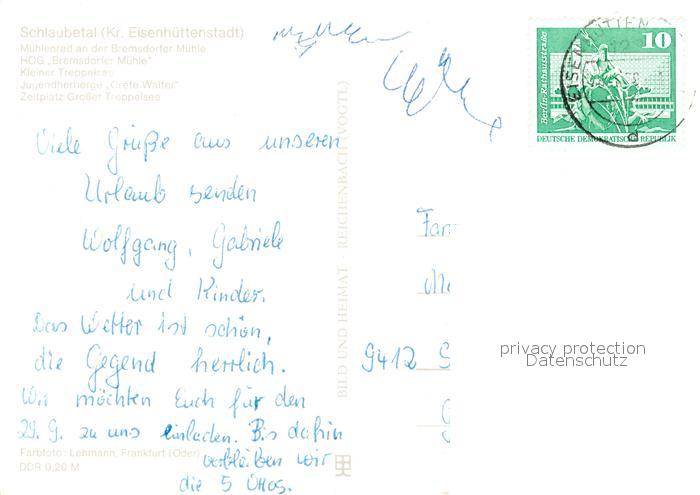 Schlaubetal (Kr. Eisenhüttenstadt)
Mühlenrad an der Bremsdorfer Mühle
HOG „Bremsdorfer Mühle"
Kleiner Treppelsee
Jugendherberge „Grete Walter"
Zeltplatz Großer Treppelsee
Viele Grüße aus unseren
Urlaub senden
Wolfgang, Gabriele
und Kinder.
Das Wetter ist schön,
die Gegend herrlich.
Wir möchten Euch für den
29. 9. zu uns einladen. Bis dahin
verbleiben wir
die 5 Ottos.
Farbfoto: Lehmann, Frankfurt (Oder)
DDR 0,20 M
BILD UND HEIMAT · REICHENBACH (VOGTL)
10
Berlin-Rathausstraße
DEUTSCHE DEMOKRATISCHE REPUBLIK
Fam
9412 S
privacy protection
Datenschutz